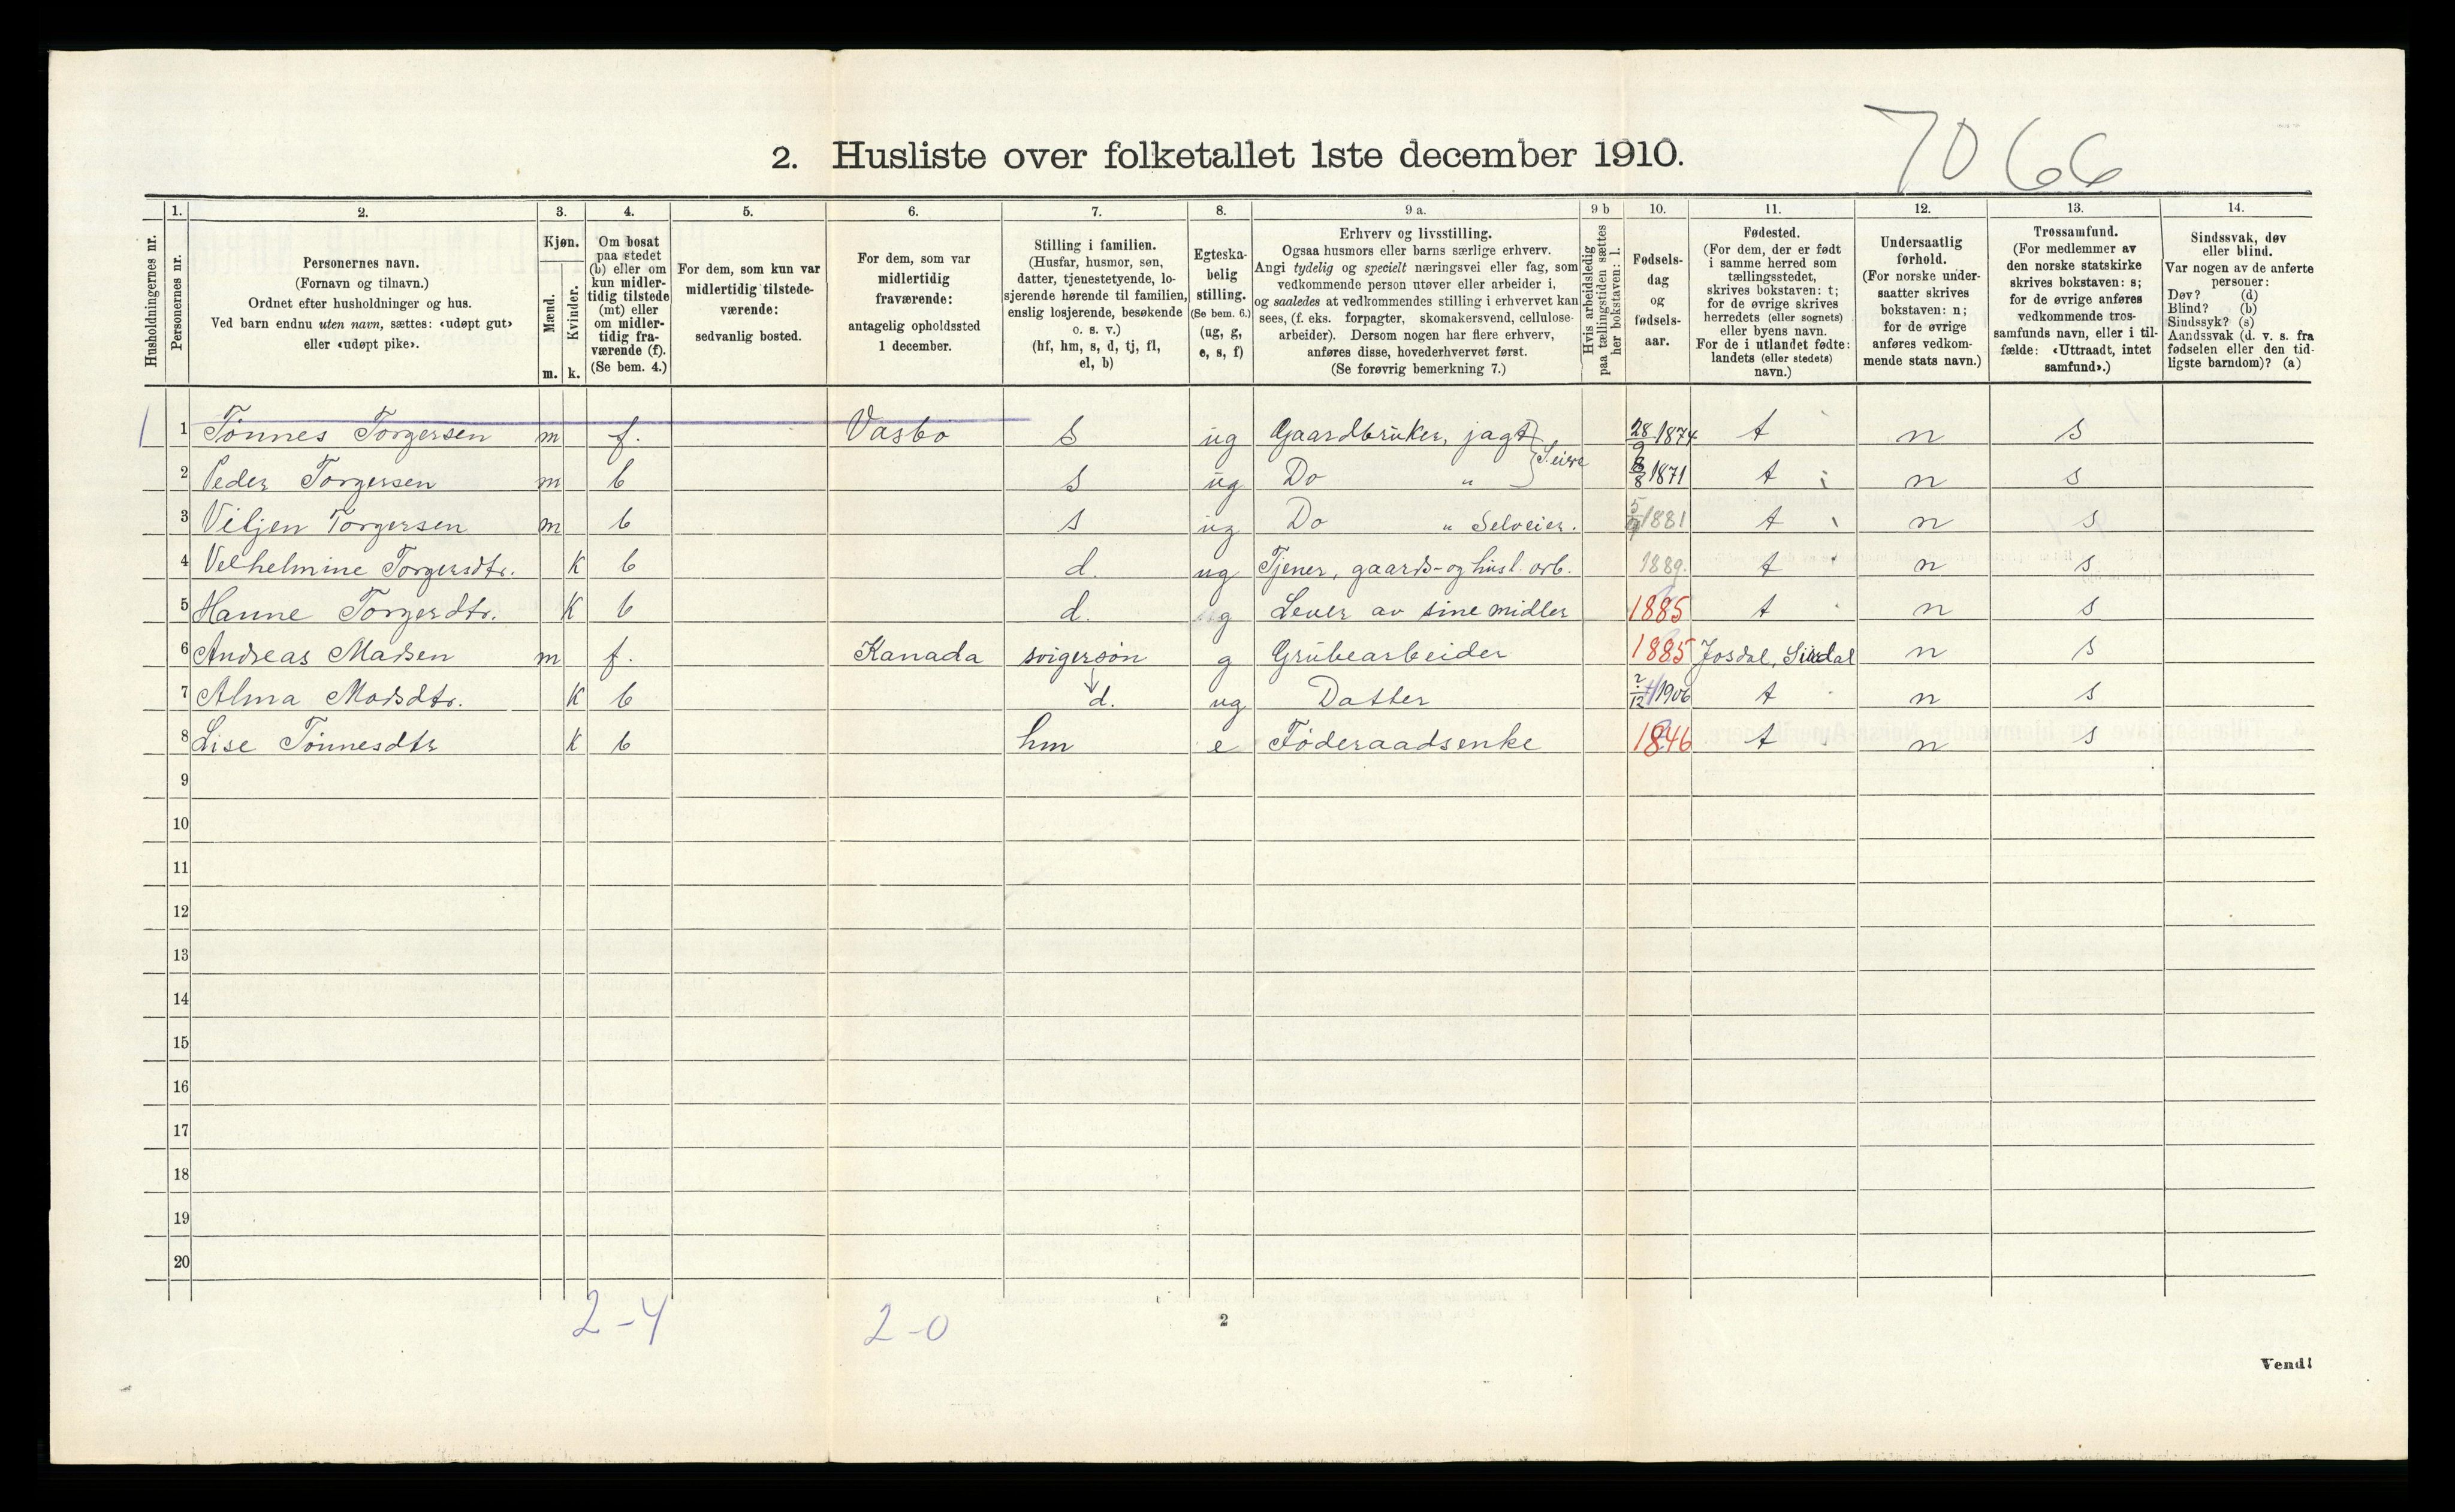 7066
2. Husliste over folketallet 1ste december 1910.
Husholdningernes nr.
1. Personernes nr.
2. Personernes navn. (Fornavn og tilnavn.) Ordnet efter husholdninger og hus. Ved barn endnu uten navn, sættes: «udøpt gut» eller «udøpt pike».
3. Kjøn. Mænd. m. Kvinder. k.
4. Om bosat paa stedet (b) eller om kun midlertidig tilstede (mt) eller om midlertidig fraværende (f). (Se bem. 4.)
5. For dem, som kun var midlertidig tilstedeværende: sedvanlig bosted.
6. For dem, som var midlertidig fraværende: antagelig opholdssted 1 december.
7. Stilling i familien. (Husfar, husmor, søn, datter, tjenestetyende, losjerende hørende til familien, enslig losjerende, besøkende o. s. v.) (hf, hm, s, d, tj, fl, el, b)
8. Egteskabelig stilling. (Se bem. 6.) (ug, g, e, s, f)
9 a. Erhverv og livsstilling. Ogsaa husmors eller barns særlige erhverv. Angi tydelig og specielt næringsvei eller fag, som vedkommende person utøver eller arbeider i, og saaledes at vedkommendes stilling i erhvervet kan sees, (f. eks. forpagter, skomakersvend, cellulosearbeider). Dersom nogen har flere erhverv, anføres disse, hovederhvervet først. (Se forøvrig bemerkning 7.)
9 b Hvis arbeidsledig paa tællingstiden sættes her bokstaven: l.
10. Fødselsdag og fødselsaar.
11. Fødested. (For dem, der er født i samme herred som tællingsstedet, skrives bokstaven: t; for de øvrige skrives herredets (eller sognets) eller byens navn. For de i utlandet fødte: landets (eller stedets) navn.)
12. Undersaatlig forhold. (For norske undersaatter skrives bokstaven: n; for de øvrige anføres vedkommende stats navn.)
13. Trossamfund. (For medlemmer av den norske statskirke skrives bokstaven: s; for de øvrige anføres vedkommende trossamfunds navn, eller i tilfælde: «Uttraadt, intet samfund».)
14. Sindssvak, døv eller blind. Var nogen av de anførte personer: Døv? (d) Blind? (b) Sindssyk? (s) Aandssvak (d. v. s. fra fødselen eller den tidligste barndom)? (a)
1 Tønnes Torgersen m f. Vasbø s ug Gaardbruker, jagt 28/9 1874 t n s
2 Peder Torgersen m b s ug Do " 1871 t n s
3 Viljen Torgersen m b s ug Do " Selveier. 1881 t n s
4 Velhelmine Torgersdtr. k b d. ug Tjener, gaards- og husl. arb. 1889. t n s
5 Hanne Torgerdtr. k b d. g Lever av sine midler 1885 t n s
6 Andreas Madsen m f. Kanada svigersøn g Grubearbeider 1885 Josdal, Sirdal n s
7 Alma Madsdtr. k b d. ug Datter 1906 t n s
8 Lise Tønnesdtr k b hm e Føderaadsenke 1846 t n s
9
10
11
12
13
14
15
16
17
18
19
20
2-4 2-0
2
Vend!